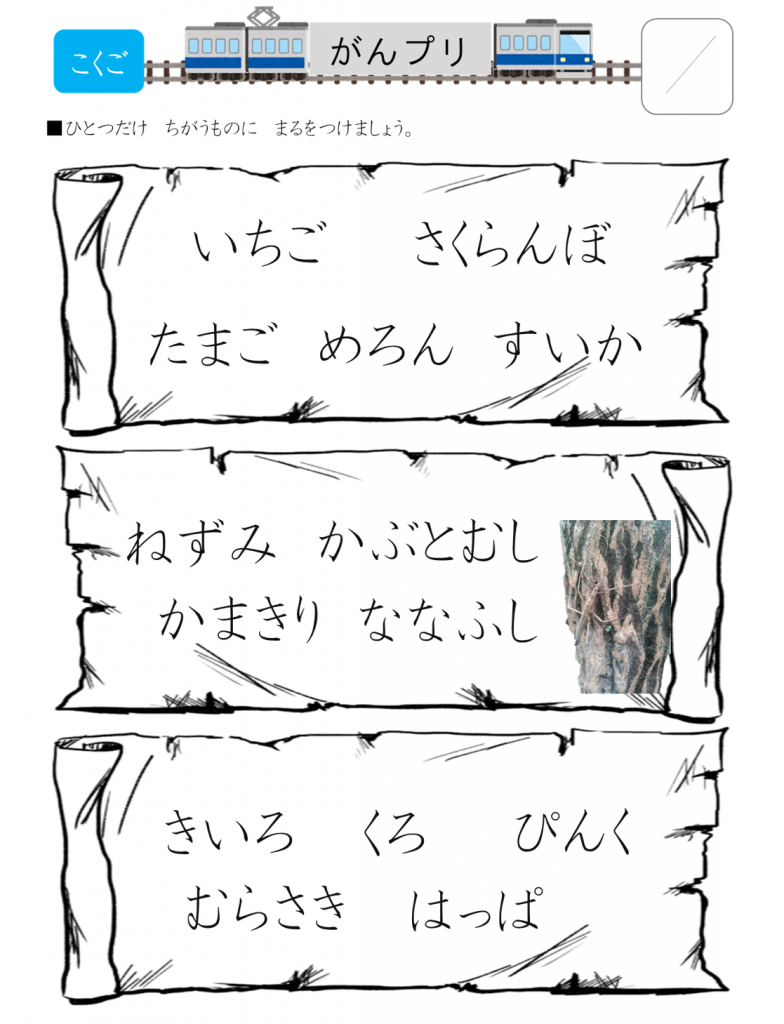 こくご
がんプリ
■ひとつだけ ちがうものに まるをつけましょう。
いちご さくらんぼ
たまご めろん すいか
ねずみ かぶとむし
かまきり ななふし
きいろ くろ ぴんく
むらさき はっぱ